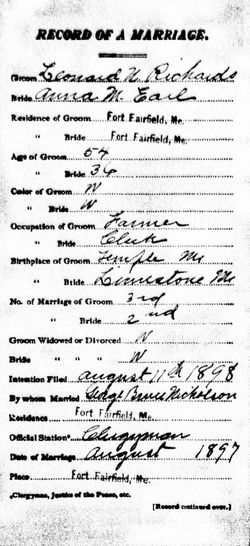 RECORD OF A MARRIAGE.
Groom Leonard N Richards
Bride Anna M. Earl
Residence of Groom Fort Fairfield, Me.
" Bride Fort Fairfield, Me.
Age of Groom 54
" Bride 36
Color of Groom W
" Bride W
Occupation of Groom Farmer
" Bride Clerk
Birthplace of Groom Temple Me
" Bride Limestone Me
No. of Marriage of Groom 3rd
" Bride 2nd
Groom Widowed or Divorced W
Bride " " " W
Intention Filed August 11th 1898
By whom Married George Bruce Nicholson
Residence Fort Fairfield, Me.
Official Station* Clergyman
Date of Marriage August 1897
Place Fort Fairfield, Me.
*Clergyman, Justice of the Peace, etc.
[Record continued over.]